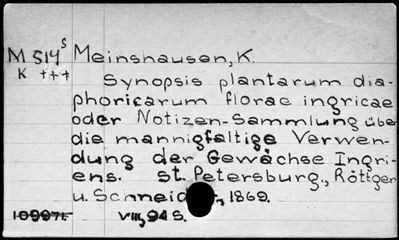 M 514 s Meinshausen, K.
K +++
Synopsis plantarum dia-
phoricarum florae ingricae
oder Notizen-Sammlung über
die mannigfaltige Verwen-
dung der Gewächse Ingri-
ens. St. Petersburg., Röttger
u. Schneider, 1869.
109971. VIII, 94 S.